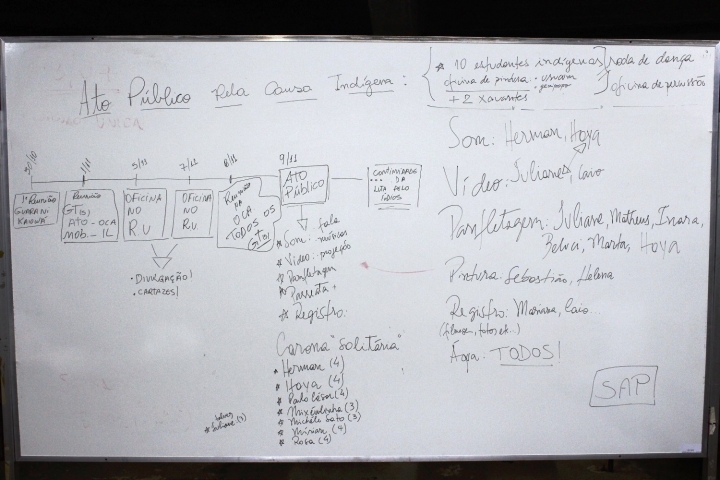 Ato Público Pela Causa Indígena:
* 10 estudantes indígenas
oficina de pintura: urucum
jenipapo
+ 2 xavantes
roda de dança
oficina de percussão
30/10
1/11
5/11
7/11
8/11
9/11
1ª Reunião
GUARANI
KAIOWÁ
Reunião
GT(s)
ATO - OCA
MOB. - IL
OFICINA
NO
RU
OFICINA
NO
RU
Reunião
NA
OCA
TODOS OS
GT(s)
ATO
PÚBLICO
CONTINUIDADE
DA
LUTA PELO
ÍNDIOS
• DIVULGAÇÃO!
• CARTAZES!
* Som: fala
músicas
* Vídeo: projeção
* Panfletagem
* Registro:
Carona "solitária"
* Herman (4)
* Hoya (4)
* Paulo César (4)
* (3)
* Michele Sato (3)
* Míriam (4)
* Rosa (4)
* Juliane (4)
Som: Herman, Hoya
Vídeo: Juliane, Caio
Panfletagem: Juliane, Matheus, Inara,
Marta, Hoya
Pintura: Sebastião, Helena
Registro: Mariana, Caio...
(filmagem, fotos etc...)
Água: TODOS!
SAP